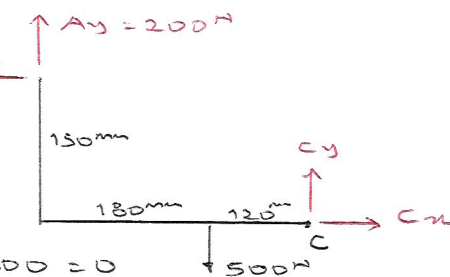 Ay = 200N
150mm
Cy
180mm 120m
Cx
C
00 = 0 500N